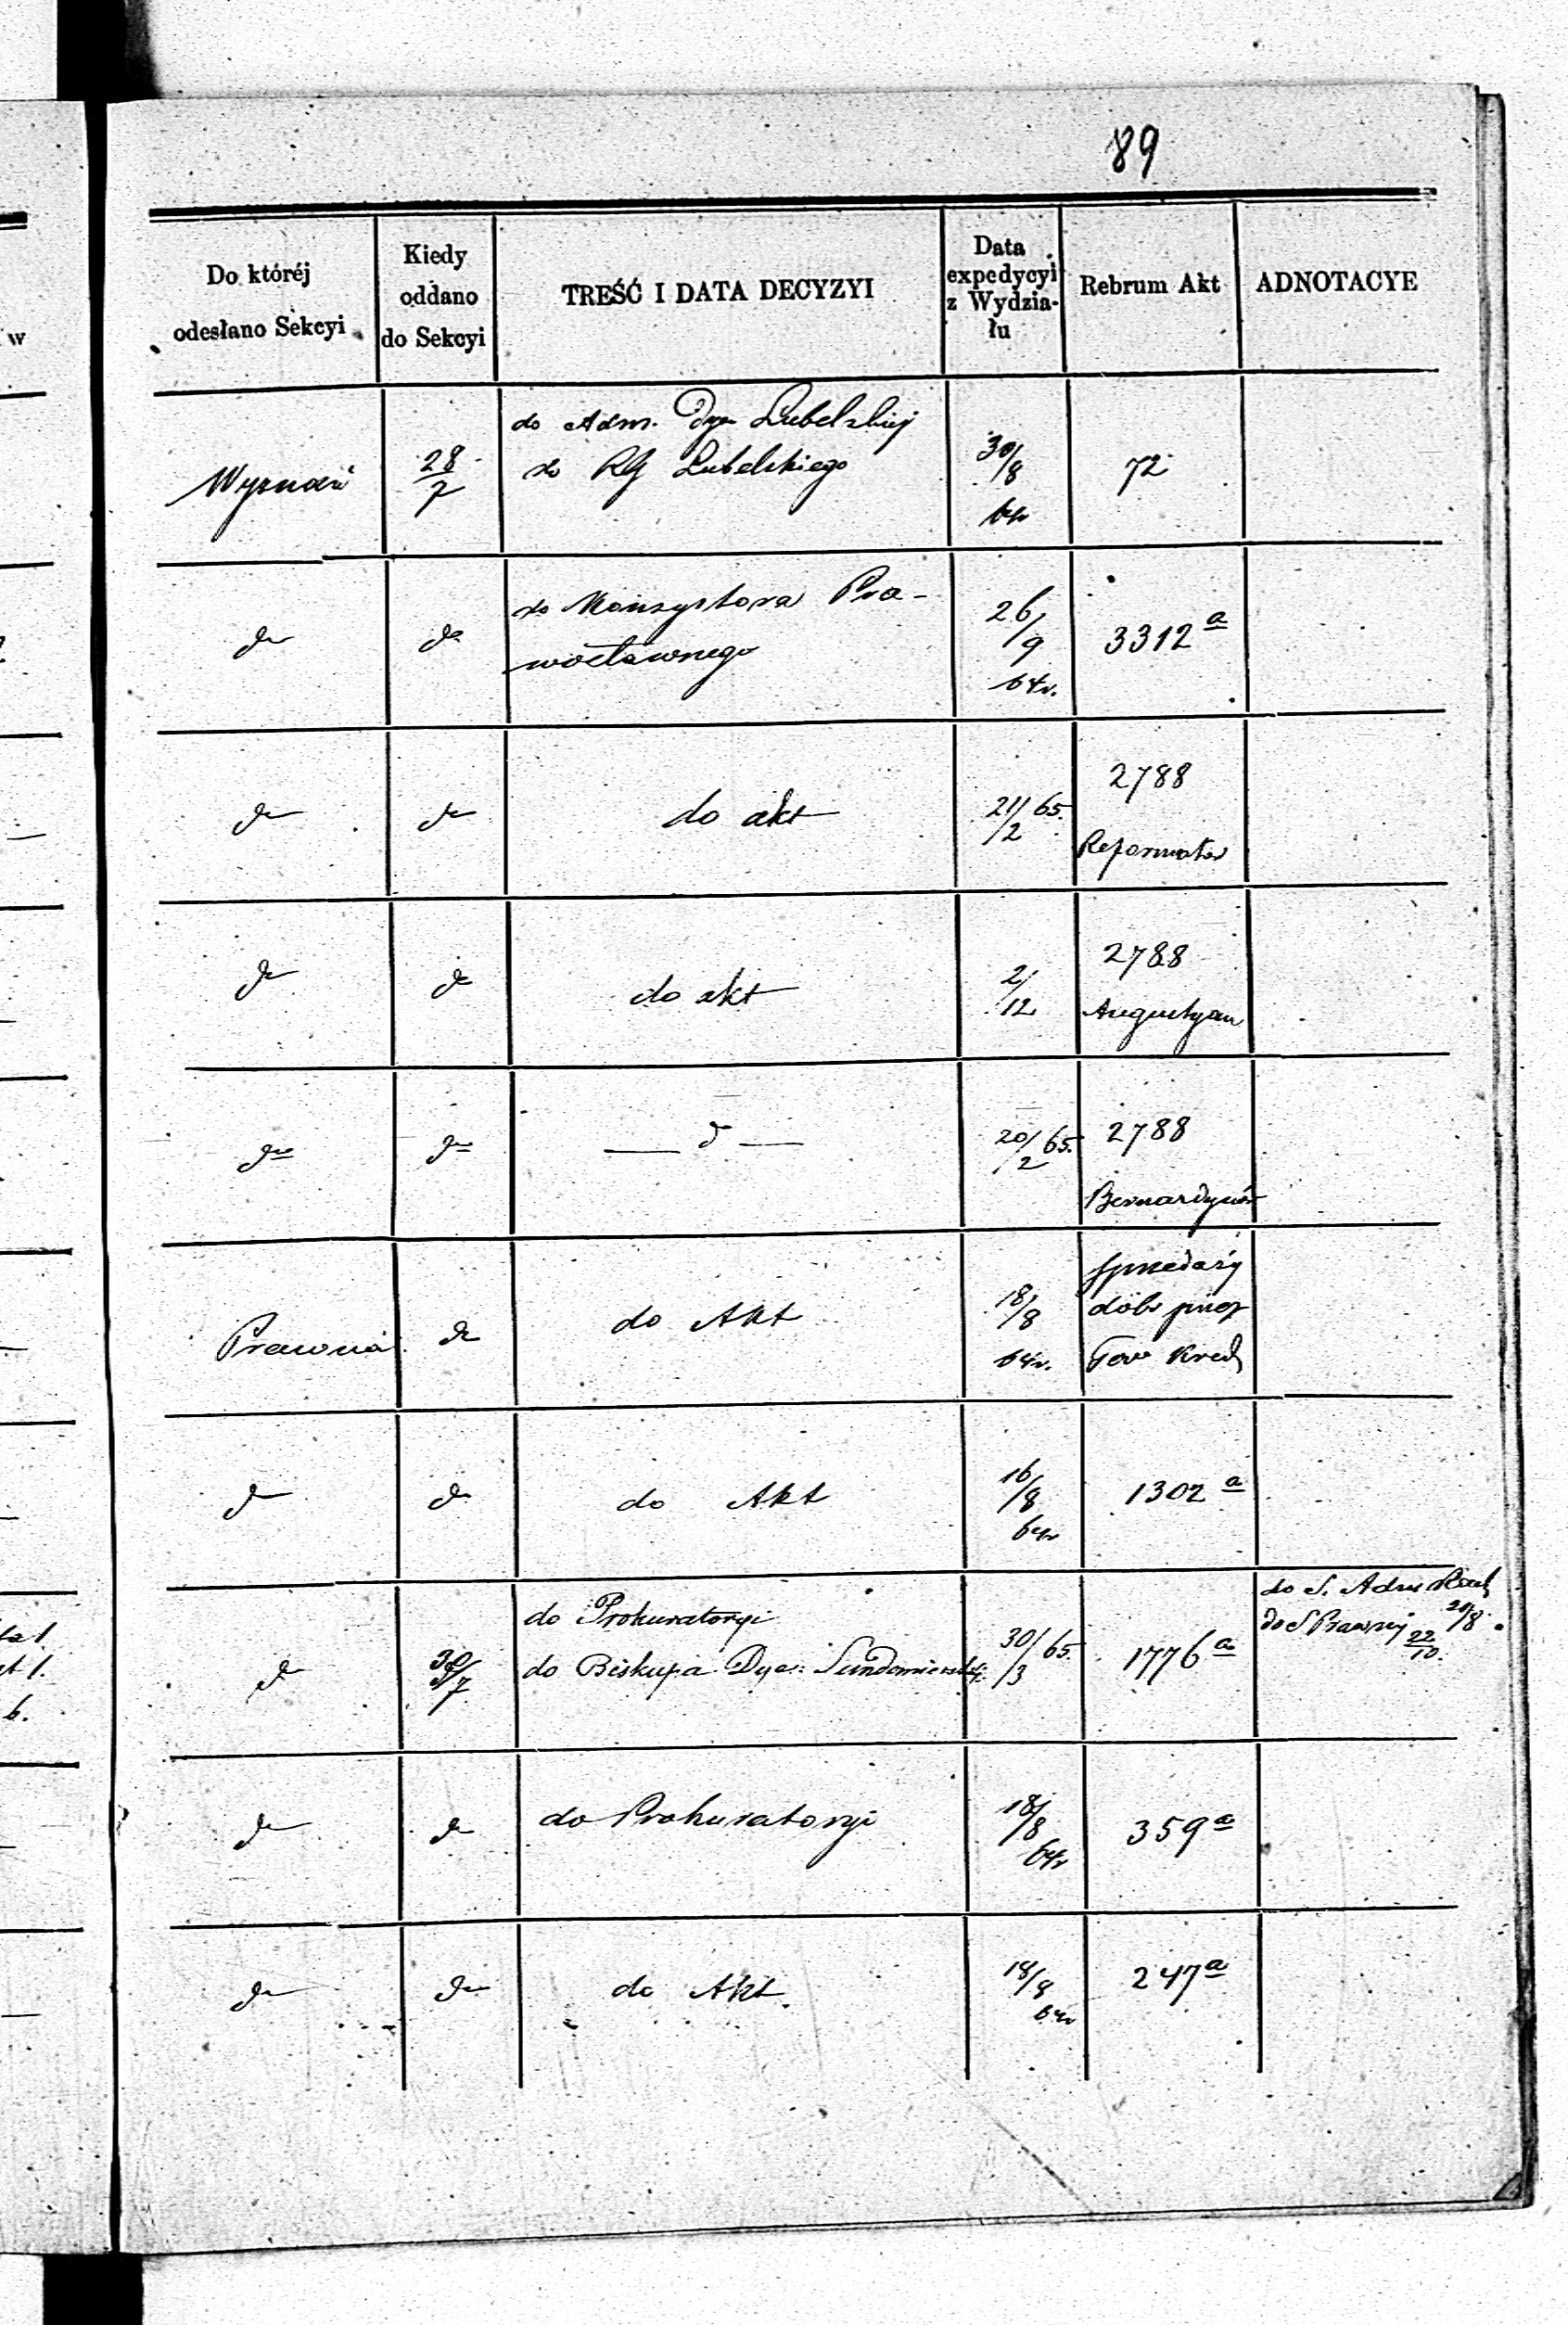 89
Do któréj
odesłano Sekcyi
Kiedy
oddano
do Sekcyi
TREŚĆ I DATA DECYZYI
Data
expedycyi
z Wydzia-
łu
Rebrum Akt
ADNOTACYE
w
Wyznań
28/7
do Adm. Dye Lubelskiej
do RG Lubelskiego
30/8
64r
72
do
do
do Konsystora Pra-
wosławnego
26/9
64r.
3312 a
do
do
do akt
21/2 65.
2788
Reformatów
do
do
do akt
2/12
2788
Augustyan
do
do
— d —
20/2 65.
2788
Bernardynów
Prawna
do
do Akt
18/8
64r.
sprzedaży
dóbr przez
Tow Kred
do
do
do Akt
16/8
64r
1302 a
do
30/7
do Prokuratoryi
do Biskupa Dyec: Sandomierskiej
30/3 65.
1776 a
do S. Adm
do S Prawnej 22/10.
do
do
do Prokuratoryi
18/8
64r
359 a
do
do
do Akt.
18/8
64r
247 a